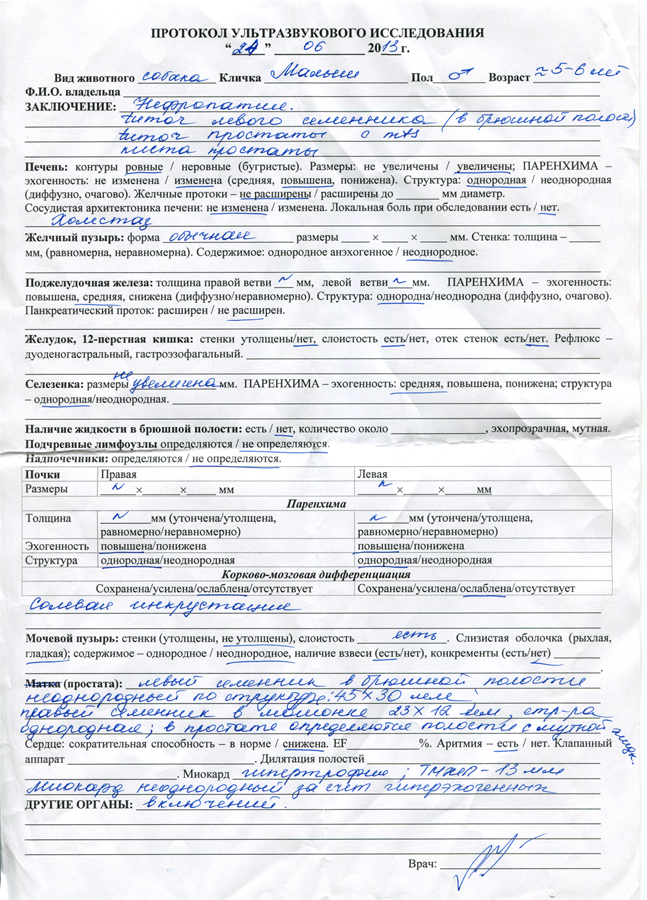 ПРОТОКОЛ УЛЬТРАЗВУКОВОГО ИССЛЕДОВАНИЯ
“24” 06 2013г.
Вид животного собака Кличка Малыш Пол ♂ Возраст ≈5-6 лет
Ф.И.О. владельца
ЗАКЛЮЧЕНИЕ: Нефропатия.
левого семенника (в брюшной полости)
простаты с mts
киста простаты
Печень: контуры ровные / неровные (бугристые). Размеры: не увеличены / увеличены; ПАРЕНХИМА –
эхогенность: не изменена / изменена (средняя, повышена, понижена). Структура: однородная / неоднородная
(диффузно, очагово). Желчные протоки – не расширены / расширены до ______ мм диаметр.
Сосудистая архитектоника печени: не изменена / изменена. Локальная боль при обследовании есть / нет.
Холестаз
Желчный пузырь: форма обычная размеры ____ × ____ × ____ мм. Стенка: толщина – ____
мм, (равномерна, неравномерна). Содержимое: однородное анэхогенное / неоднородное.
Поджелудочная железа: толщина правой ветви N мм, левой ветви N мм. ПАРЕНХИМА – эхогенность:
повышена, средняя, снижена (диффузно/неравномерно). Структура: однородна/неоднородна (диффузно, очагово).
Панкреатический проток: расширен / не расширен.
Желудок, 12-перстная кишка: стенки утолщены/нет, слоистость есть/нет, отек стенок есть/нет. Рефлюкс –
дуоденогастральный, гастроэзофагальный.
Селезенка: размеры не увеличена мм. ПАРЕНХИМА – эхогенность: средняя, повышена, понижена; структура
– однородная/неоднородная.
Наличие жидкости в брюшной полости: есть / нет, количество около ____________, эхопрозрачная, мутная.
Подчревные лимфоузлы определяются / не определяются.
Надпочечники: определяются / не определяются.
Почки Правая Левая
Размеры N × ____ × ____ мм N × ____ × ____ мм
Паренхима
Толщина N мм (утончена/утолщена, N мм (утончена/утолщена,
равномерно/неравномерно) равномерно/неравномерно)
Эхогенность повышена/понижена повышена/понижена
Структура однородная/неоднородная однородная/неоднородная
Корково-мозговая дифференциация
Сохранена/усилена/ослаблена/отсутствует Сохранена/усилена/ослаблена/отсутствует
Солевая инкрустация
Мочевой пузырь: стенки (утолщены, не утолщены), слоистость есть. Слизистая оболочка (рыхлая,
гладкая); содержимое – однородное / неоднородное, наличие взвеси (есть/нет), конкременты (есть/нет)
Матка (простата): левый семенник в брюшной полости
неоднородный по структуре: 45×30 мм
правый семенник в мошонке 23×12 мм, стр-ра
однородная; в простате определяются полости с мутной жидк.
Сердце: сократительная способность – в норме / снижена. EF ____________%. Аритмия – есть / нет. Клапанный
аппарат ____________. Дилятация полостей
. Миокард гипертрофия; ТМЖП - 13 мм
Миокард неоднородный за счет гиперэхогенных
ДРУГИЕ ОРГАНЫ: включений.
Врач: